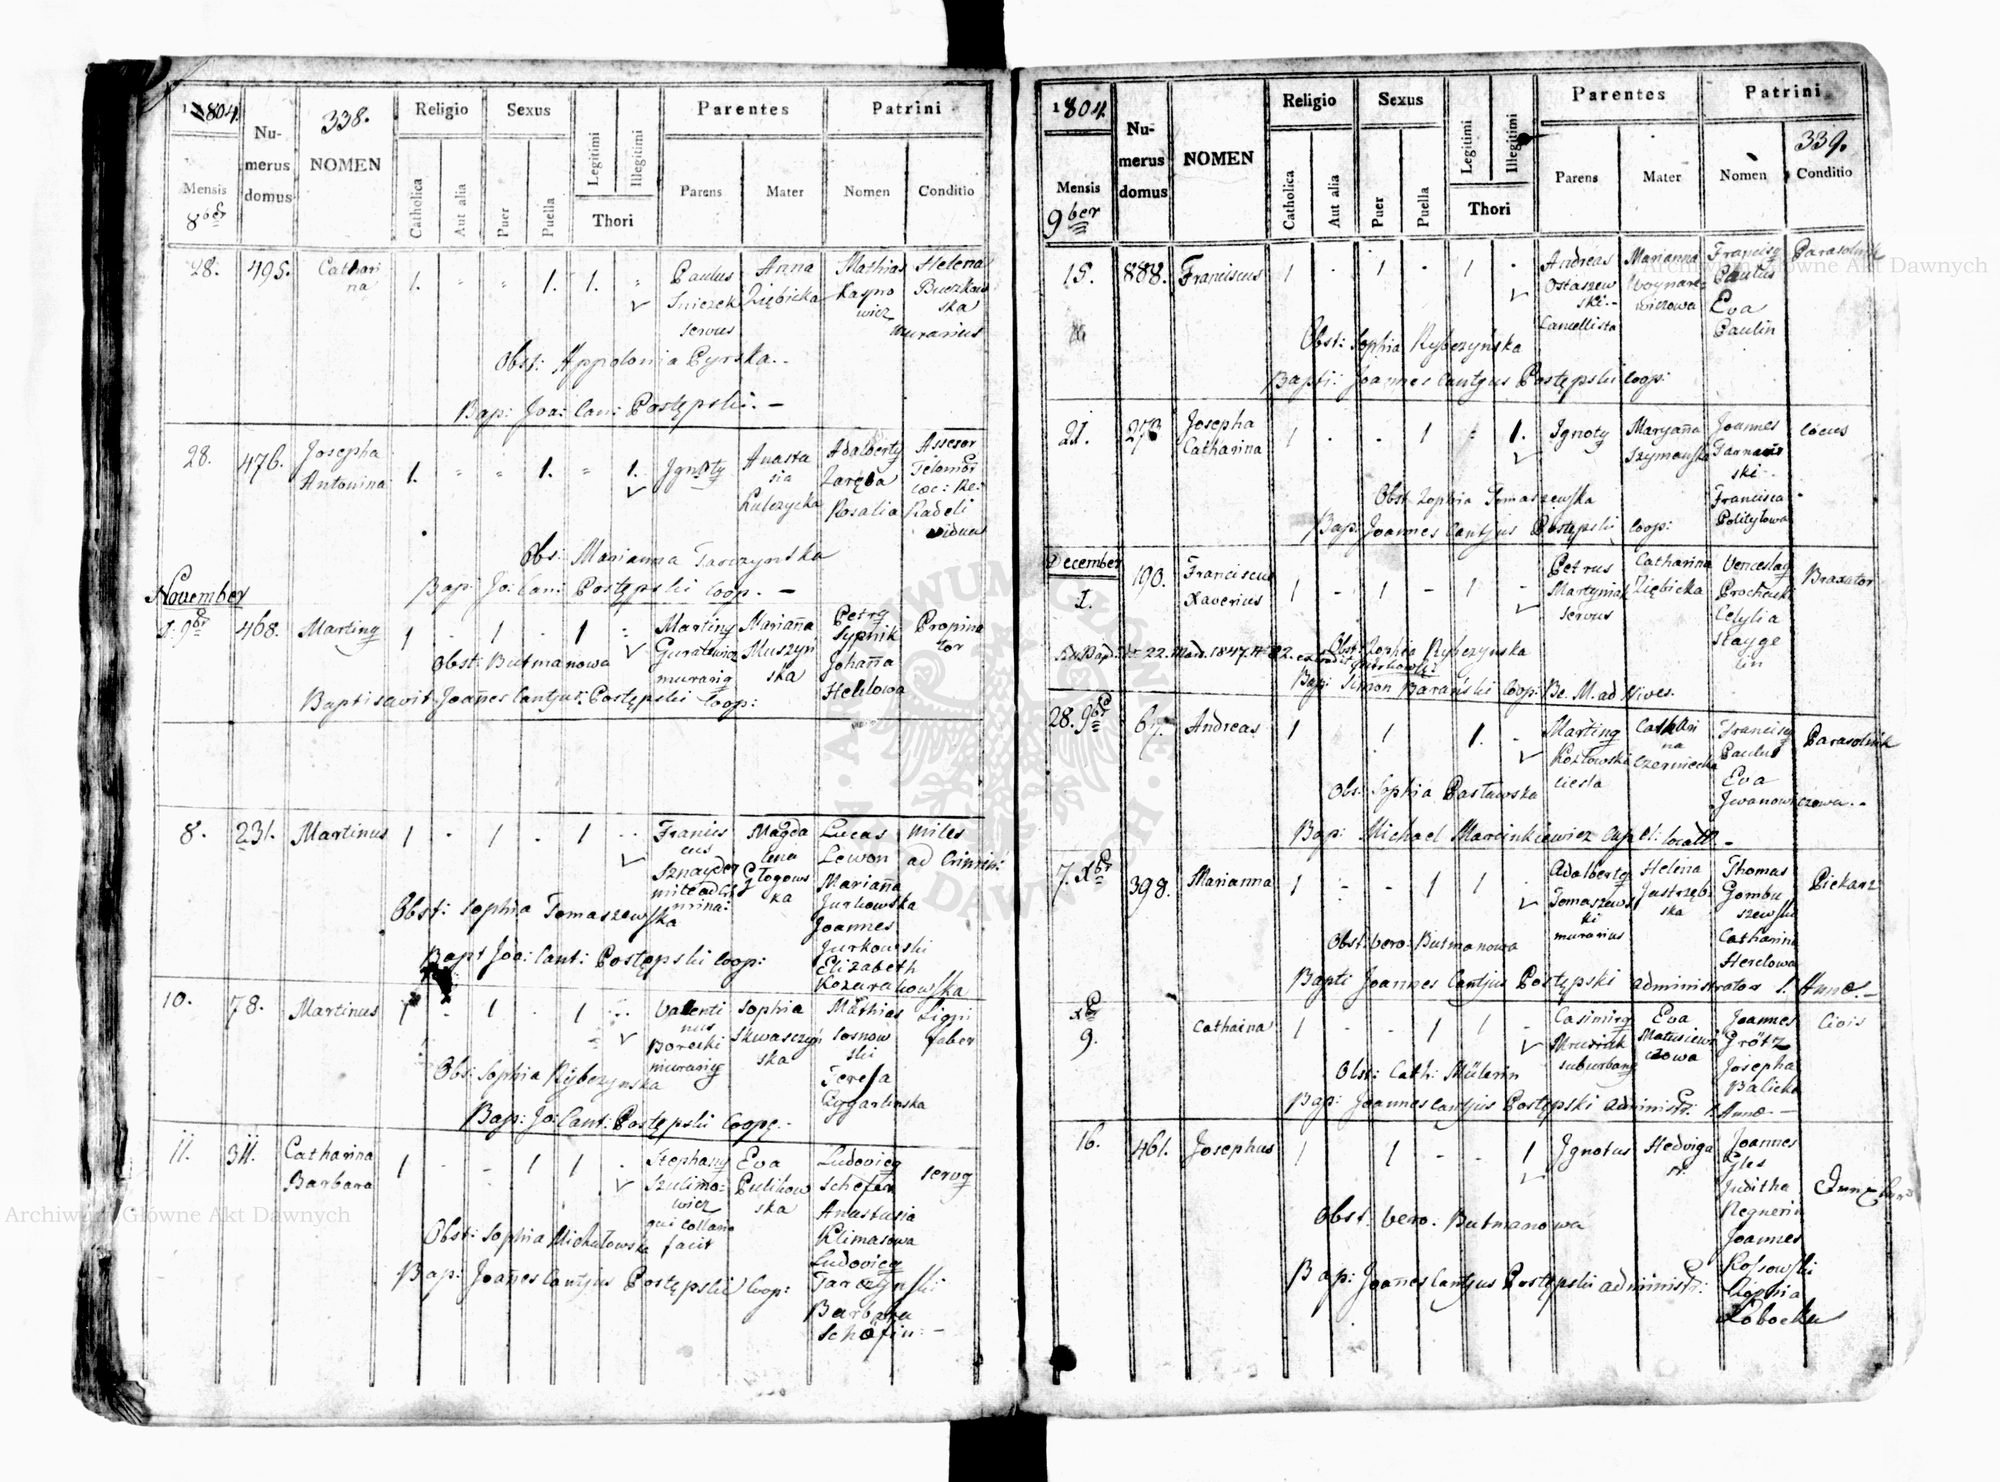 1804.
338.
Numerus domus
NOMEN
Religio
Sexus
Legitimi
Illegitimi
Thori
Parentes
Patrini
Mensis
8ber
Catholica
Aut alia
Puer
Puella
Parens
Mater
Nomen
Conditio
28. 495. Cathari
na
1. 1. 1.
Paulus
servus
Anna
Ziębicka
Mathias
Rayno
wicz
Helena
Buczkow
ska
murarius
Obst: Appolonia Cyrska.
Bap: Joa: Can: Postępski. -
28. 476. Josepha
Antonina
1. 1. 1.
Ignoty
Anasta
sia
Kulczycka
Adalberty
Zaręba
Rosalia
Assesor
Radeli
viduus
Obs: Marianna Tarczynska
Bap: Jo: Can: Postępski Coop. -
November
1. 9br 468. Martinq
1 1 1
Martinq
murariq
Mariaña
Muszyń
ska
Petrq
Sypnik
Johaña
Heldowa
Propina
tor
Obst: Butmanowa
Baptisavit Joañes Cantjus: Postępski Coop:
8. 231. Martinus
1 1. 1
Francis
cus
Sznayder
Magda
lena
Głogows
ka
Lucas
Lewon
Mariaña
Jurkowska
Joannes
Jurkowski
Elizabeth
Kozurakowska
miles
Obst: Sophia Tomaszewska
Bapt Joa: Cant: Postępski Coop:
10. 78. Martinus
1 1 1
Valenti
nus
Borecki
murariq
Sophia
Skwarczyń
ska
Mathias
Sosnow
ski
Teresa
Ligni
faber
Obs: Sophia Rybczynska
Bap: Jo: Cant: Postępski Coope.
11. 311. Catharina
Barbara
1 1 1
Stephanq
Szulimo:
wicz
facit
Eva
Pulikow
ska
Ludovicq
Schefer
Anastasia
Klimasowa
Ludovicq
Tarczynski
Barbara
Schöfin: -
servq
Obst: Sophia Michałowska
Bap: Joañes Cantjus Postępski Coop:
1804.
339.
Numerus domus
NOMEN
Religio
Sexus
Legitimi
Illegitimi
Thori
Parentes
Patrini
Mensis
9ber
Catholica
Aut alia
Puer
Puella
Parens
Mater
Nomen
Conditio
15. 888. Franciscus
1 1 1
Andreas
Ostaszew
ski.-
Cancellista
Marianna
Franciscq
Paulus
Eva
Paulin
Parasolnik
Obst: Sophia Rybczyńska
Bapti: Joannes Cantjus Postępski Coop:
21. 273 Josepha
Catharina
1 1 1.
Ignoty
Maryaña
Szymańska
Joannes
Tarnaw
ski
Francisca
Politylowa
Cocus
Obst Zophia Tomaszewska
Bap: Joannes Cantjus Postępski Coop:
December
1. 190. Franciscus
Xaverius
1 1 1
Petrus
Martyniak
servus
Catharina
Ziębicka
Venceslaq
Prochaski
Celylia
Stayge
lin
Braxator
Obst: Zophia Rybczynska
Bap: Simon Barański Coop: Be. M. ad Nives.
28. 9br 67. Andreas
1 1 1.
Martinq
Kozłowski
ciesla
Cathari
na
Czerniecka
Franciscq
Paulus
Eva
Iwanowiczowa.-
Parasolnik
Obs: Sophia Pasławska
Bap: Michael Marcinkiewicz
7. Xbr 398. Marianna
1 1 1
Adalbertq
Tomaszews
ki
murarius
Helena
Jastrzęb
ska
Thomas
Gombu
szewski
Catharina
Herclowa
Piekarz
Obst: vero: Butmanowa
Bapti Joannes Cantjus Postępski administrator
Xbr
9. Cathaina
1 1 1
Casimirq
Mrusiak
suburbanq
Eva
Matusiewi
czowa
Joannes
Grötz
Josepha
Balicka
Civis
Obst: Cath: Mülerin
Bap: Joannes Cantjus Postępski administr:
16. 461. Josephus
1 1 1
Ignotus
Hedviga
Joannes
Gles
Juditha
Regnerin
Joannes
Rossowski
Sophia
Kobocka
Obst: vero: Butmanowa
Bap: Joañes Cantjus Postępski administr:
Archiwum Główne Akt Dawnych
Archiwum Główne Akt Dawnych
ARCHIWUM GŁÓWNE AKT DAWNYCH